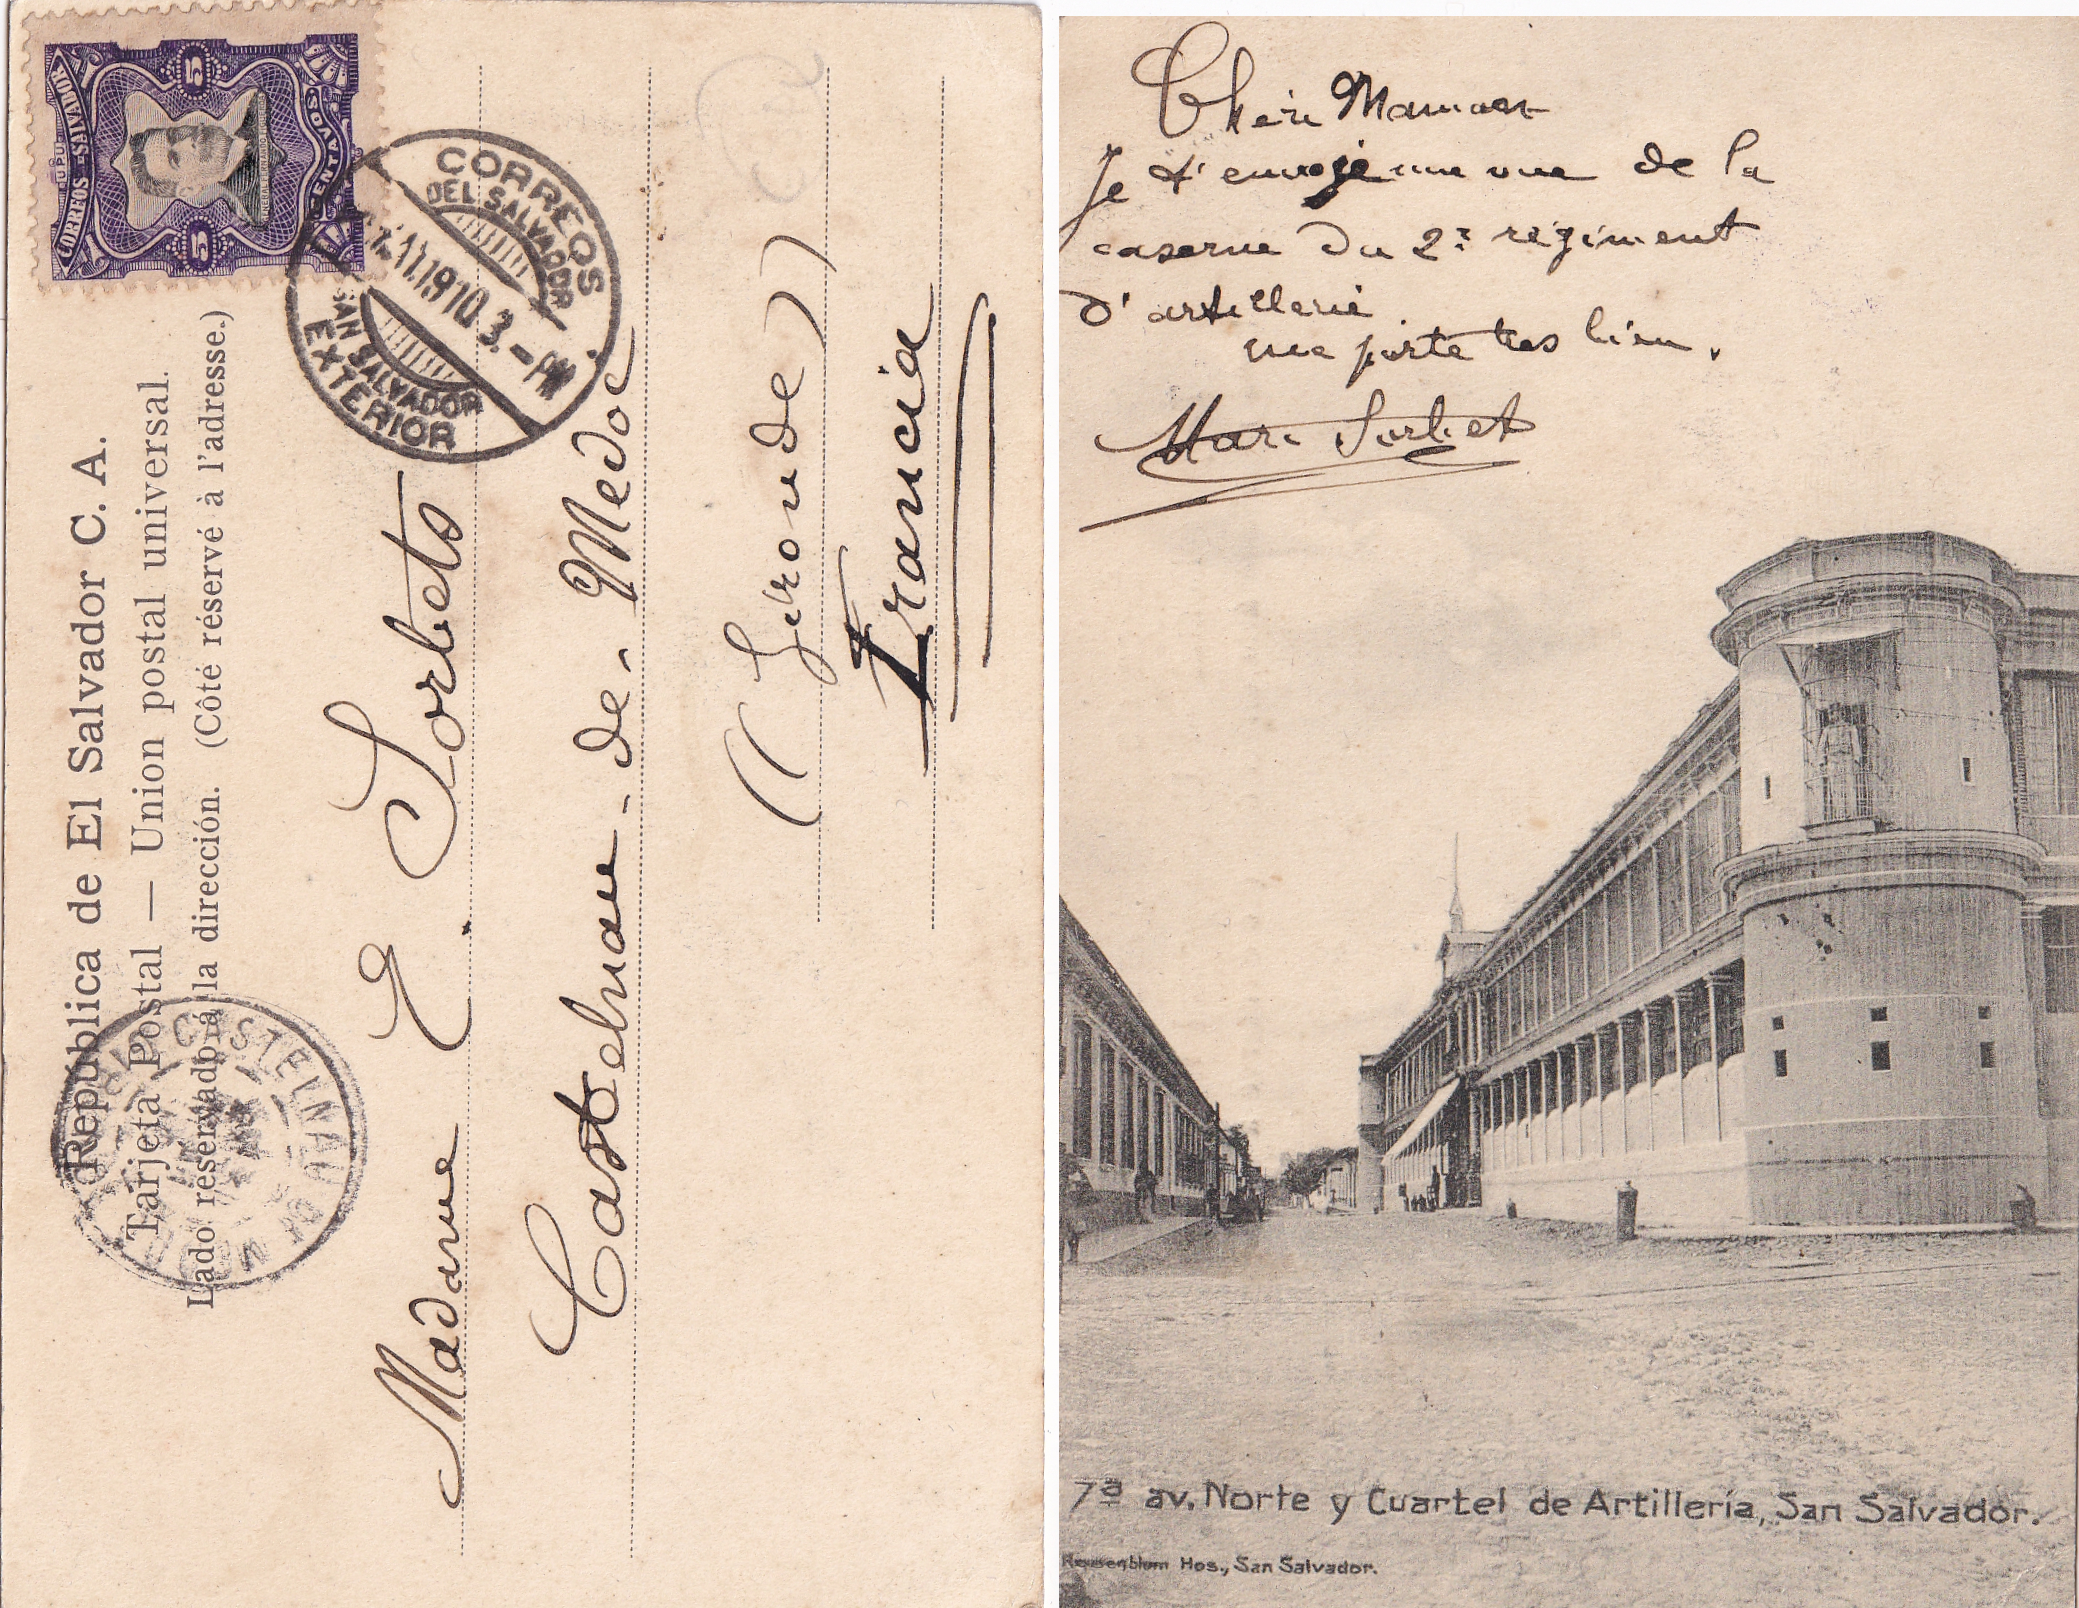 República de El Salvador C. A.
Tarjeta Postal — Union postal universal.
Lado reservado á la dirección. (Côté réservé à l'adresse.)
U.P.U.
CORREOS SALVADOR
5 5
CENTAVOS
CORREOS
DEL SALVADOR
11.1910.3.-PM
SAN SALVADOR
EXTERIOR
CASTELNAU DE MEDOC
Madame E. Sorbets
Castelnau-de-Medoc
(Gironde)
Francia
Chère Maman
Je t'envoie une vue de la
caserne du 2e régiment
d'artillerie
me porte tres bien.
Marc Sorbet
7ª av. Norte y Cuartel de Artillería, San Salvador.
Hos., San Salvador.